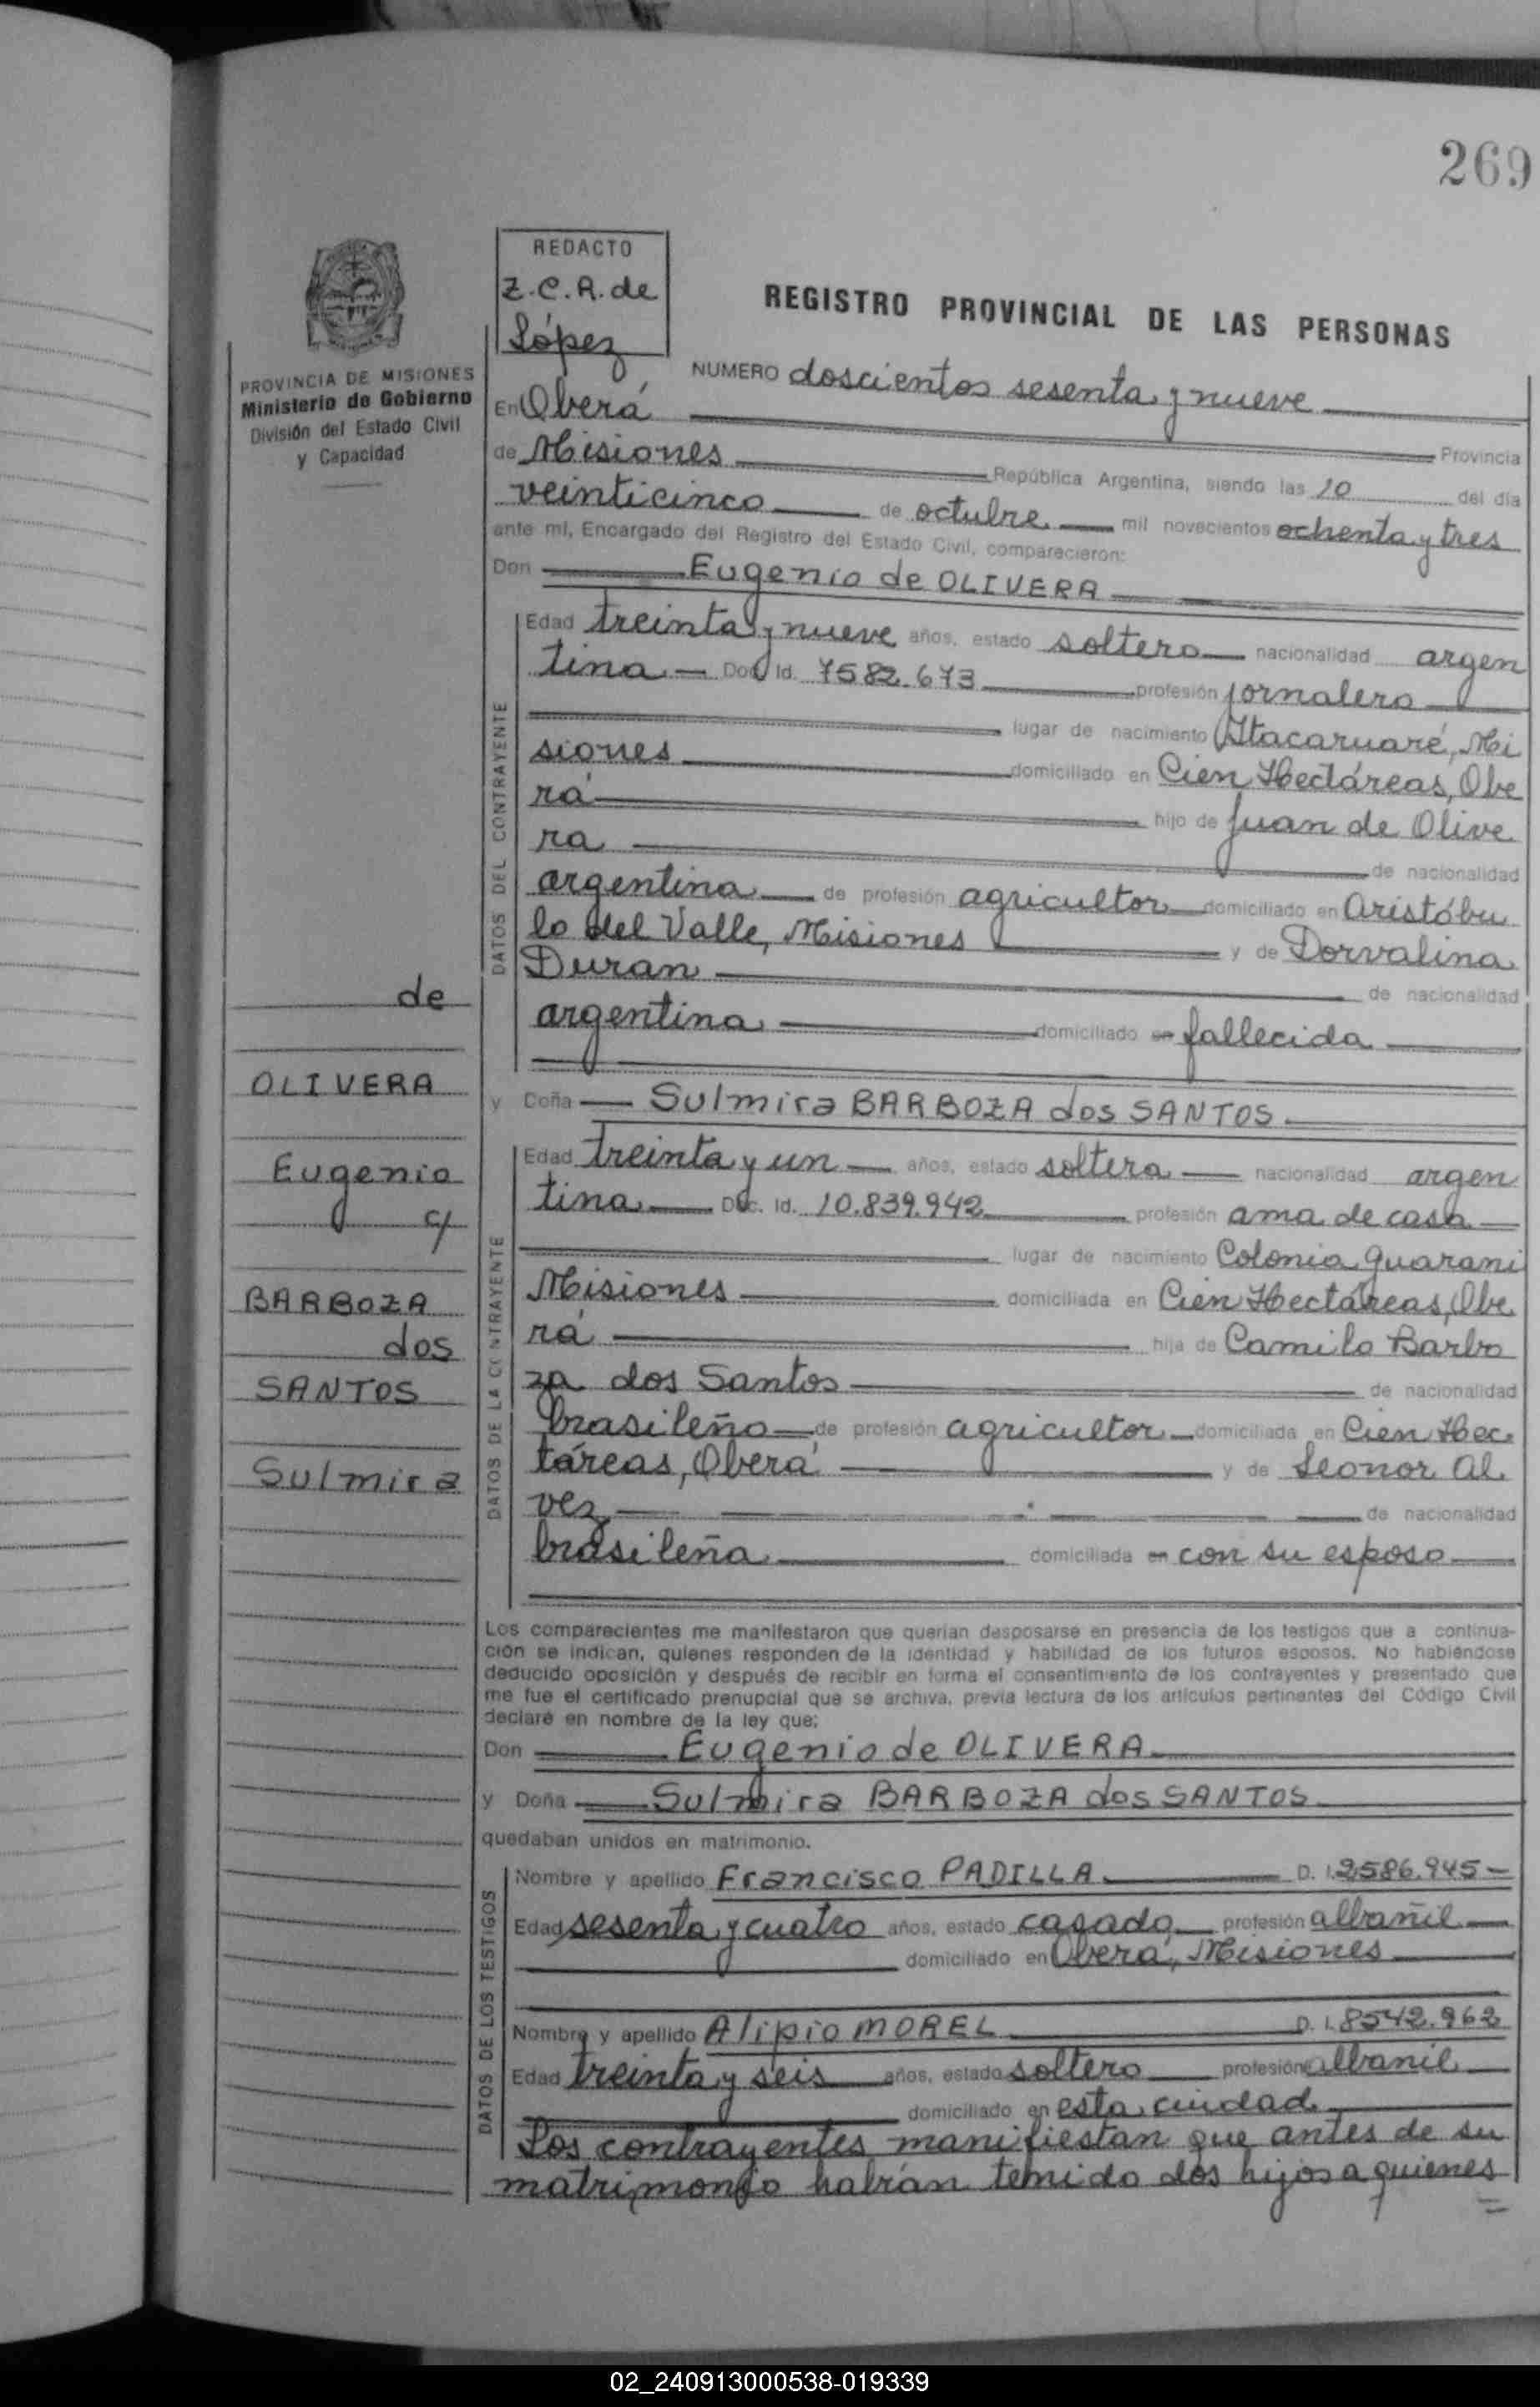 269
REDACTO
Z.C.A. de
López
REGISTRO PROVINCIAL DE LAS PERSONAS
PROVINCIA DE MISIONES
Ministerio de Gobierno
División del Estado Civil
y Capacidad
NUMERO doscientos sesenta y nueve
En Oberá
Provincia
de Misiones República Argentina, siendo las 10 del día
veinticinco de octubre mil novecientos ochenta y tres
ante mí, Encargado del Registro del Estado Civil, comparecieron:
Don Eugenio de OLIVERA
DATOS DEL CONTRAYENTE
Edad treinta y nueve años, estado soltero nacionalidad argen
tina Doc. Id. 7582.673 profesión jornalero
lugar de nacimiento Itacaruaré, Mi
siones domiciliado en Cien Hectáreas, Obe
rá hijo de Juan de Olive
ra de nacionalidad
argentina de profesión agricultor domiciliado en Aristóbu
lo del Valle, Misiones y de Dorvalina
Duran de nacionalidad
argentina domiciliado en fallecida
y Doña Sulmira BARBOZA dos SANTOS
DATOS DE LA CONTRAYENTE
Edad treinta y un años, estado soltera nacionalidad argen
tina Doc. Id. 10.839.942 profesión ama de casa
lugar de nacimiento Colonia Guarani
Misiones domiciliada en Cien Hectáreas, Obe
rá hija de Camilo Barbo
za dos Santos de nacionalidad
brasileño de profesión agricultor domiciliada en Cien Hec
táreas, Oberá y de Leonor Al
vez de nacionalidad
brasileña domiciliada en con su esposo
de
OLIVERA
Eugenio
c/
BARBOZA
dos
SANTOS
Sulmira
Los comparecientes me manifestaron que querían desposarse en presencia de los testigos que a continua-
ción se indican, quienes responden de la identidad y habilidad de los futuros esposos. No habiéndose
deducido oposición y después de recibir en forma el consentimiento de los contrayentes y presentado que
me fue el certificado prenupcial que se archiva, previa lectura de los artículos pertinentes del Código Civil
declaré en nombre de la ley que;
Don Eugenio de OLIVERA
y Doña Sulmira BARBOZA dos SANTOS
quedaban unidos en matrimonio.
DATOS DE LOS TESTIGOS
Nombre y apellido Francisco PADILLA D. I. 2586.945
Edad sesenta y cuatro años, estado casado profesión albañil
domiciliado en Oberá, Misiones
Nombre y apellido Alipio MOREL D. I. 8542.962
Edad treinta y seis años, estado soltero profesión albanil
domiciliado en esta ciudad
Los contrayentes manifiestan que antes de su
matrimonio habían tenido dos hijos a quienes
02_240913000538-019339